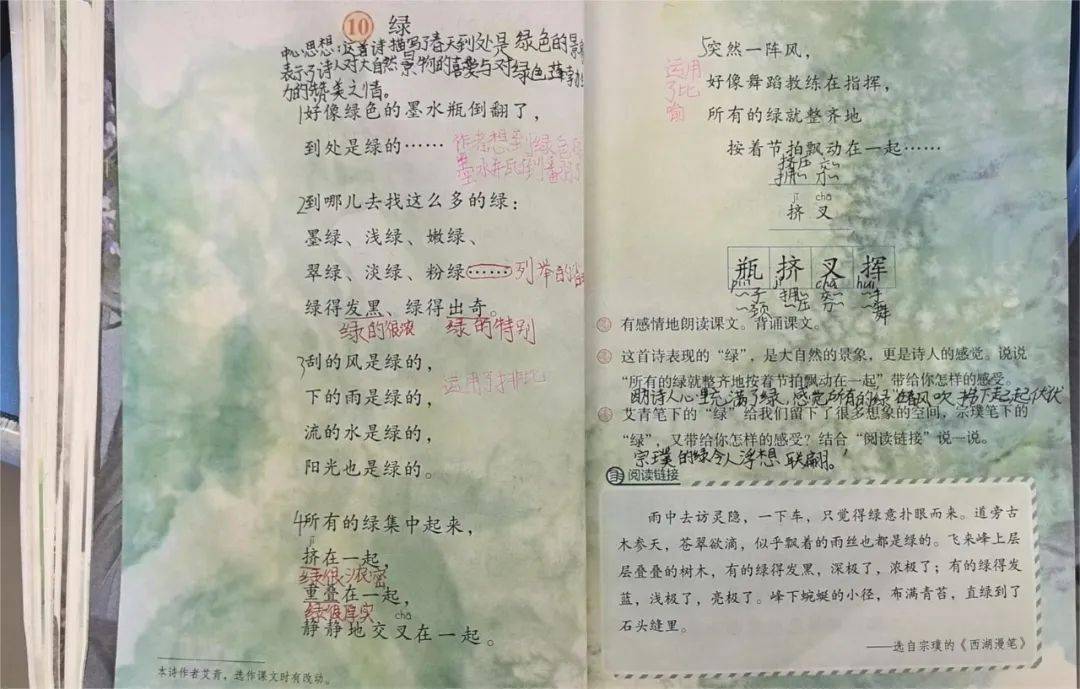 10 绿
中心思想:这首诗描写了春天到处是绿色的景
表示了诗人对大自然景物的喜爱与对绿色蓬勃
力的赞美之情。
1好像绿色的墨水瓶倒翻了,
到处是绿的…… 作者想到绿色
墨水瓶倒翻了
2到哪儿去找这么多的绿:
墨绿、浅绿、嫩绿、
翠绿、淡绿、粉绿…… 列举的
绿得发黑、绿得出奇。
绿的很浓 绿的特别
3刮的风是绿的,
下的雨是绿的, 运用了排比
流的水是绿的,
阳光也是绿的。
4所有的绿集中起来,
jǐ
挤在一起,
绿很浓密
重叠在一起,
绿很厚实
chā
静静地交叉在一起。
本诗作者艾青,选作课文时有改动。
5突然一阵风,
运用了比喻
好像舞蹈教练在指挥,
所有的绿就整齐地
按着节拍飘动在一起……
挤压
jǐ chā
挤 叉
瓶 挤 叉 挥
jǐ chā huī
有感情地朗读课文。背诵课文。
这首诗表现的“绿”,是大自然的景象,更是诗人的感觉。说说
“所有的绿就整齐地按着节拍飘动在一起”带给你怎样的感受。
诗人心里充满了绿,感觉所有的绿在风吹下起起伏伏
艾青笔下的“绿”给我们留下了很多想象的空间,宗璞笔下的
“绿”,又带给你怎样的感受?结合“阅读链接”说一说。
宗璞的绿令人浮想联翩。
阅读链接
雨中去访灵隐,一下车,只觉得绿意扑眼而来。道旁古
木参天,苍翠欲滴,似乎飘着的雨丝也都是绿的。飞来峰上层
层叠叠的树木,有的绿得发黑,深极了,浓极了;有的绿得发
蓝,浅极了,亮极了。峰下蜿蜒的小径,布满青苔,直绿到了
石头缝里。
——选自宗璞的《西湖漫笔》